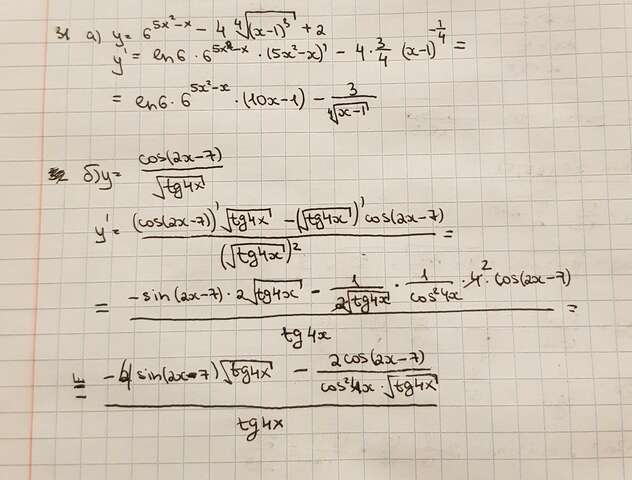 31 а) y = 6^{5x²-x} - 4 \sqrt[4]{(x-1)^3} + 2
y' = ln6 · 6^{5x²-x} · (5x²-x)' - 4 · \frac{3}{4} (x-1)^{-\frac{1}{4}} =
= ln6 · 6^{5x²-x} · (10x-1) - \frac{3}{\sqrt[4]{x-1}}
б) y = \frac{cos(2x-7)}{\sqrt{tg4x}}
y' = \frac{(cos(2x-7))' \sqrt{tg4x} - (\sqrt{tg4x})' cos(2x-7)}{(\sqrt{tg4x})^2} =
= \frac{-sin(2x-7) · 2\sqrt{tg4x} - \frac{1}{2\sqrt{tg4x}} · \frac{1}{cos²4x} · 4² · cos(2x-7)}{tg4x} =
= \frac{-2 sin(2x-7) \sqrt{tg4x} - \frac{2cos(2x-7)}{cos²4x · \sqrt{tg4x}}}{tg4x}